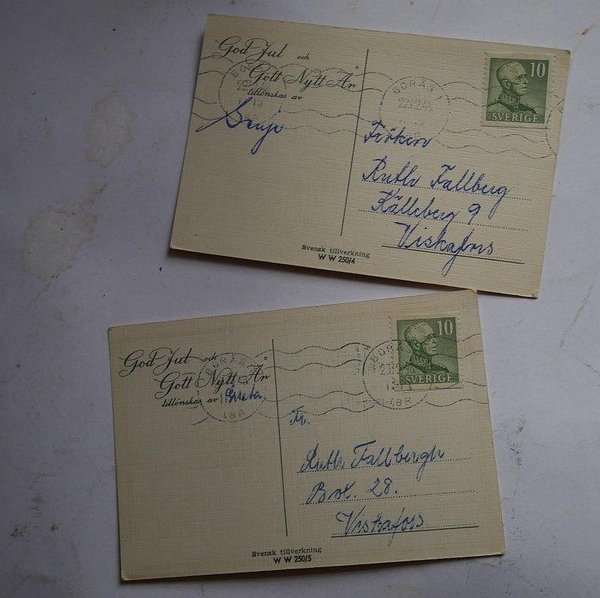 God Jul och
Gott Nytt År
tillönskas av
BORÅS
BORÅS
10
SVERIGE
Fröken
Ruth Fallberg
Källeberg 9
Viskafors
Svensk tillverkning
W W 250/4
God Jul och
Gott Nytt År
tillönskas av Greta.
BORÅS
BORÅS
LBR
LBR
10
SVERIGE
Fr.
Ruth Fallbergh
Box. 28.
Viskafors
Svensk tillverkning
W W 250/5